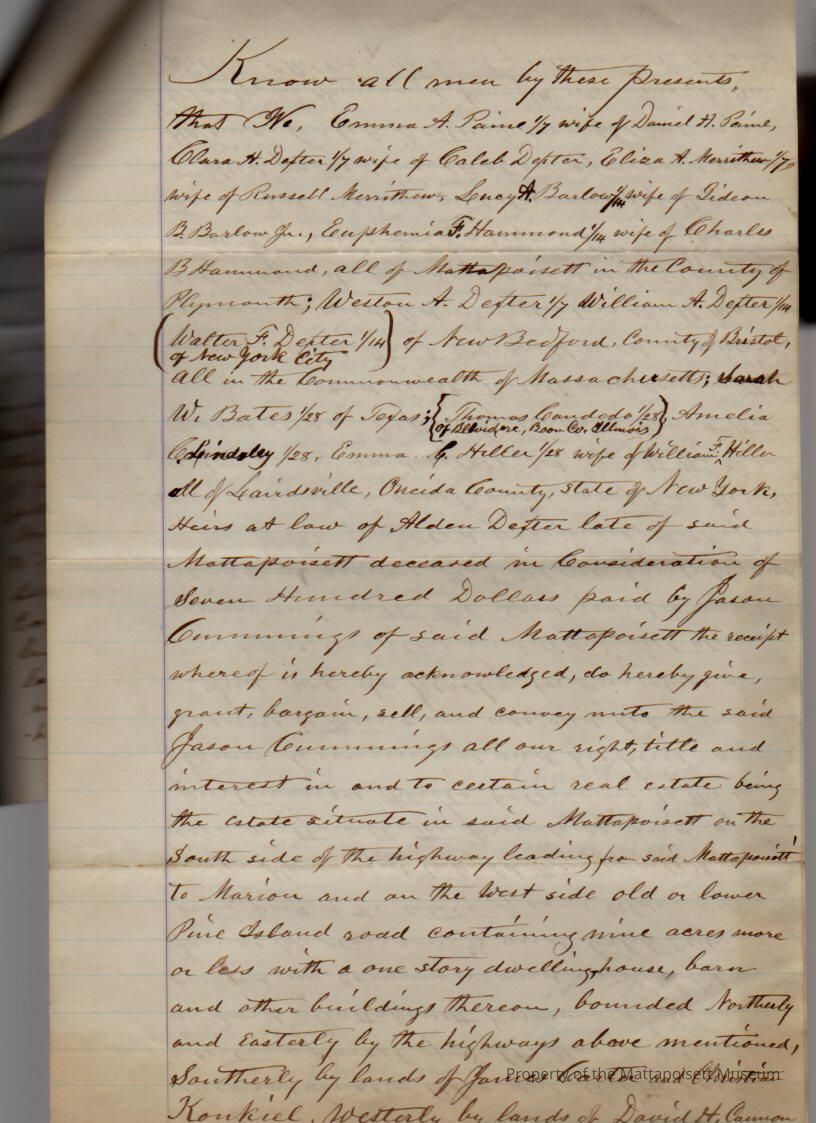 Know all men by these presents,
that We, Emma A. Paine 1/7 wife of Daniel H. Paine,
Clara H. Dexter 1/7 wife of Caleb Dexter, Eliza A. Merrithew 1/7,
wife of Russell Merrithew, Lucy A. Barlow 1/14 wife of Gideon
B. Barlow Jr., Euphemia F. Hammond 1/14 wife of Charles
B Hammond, all of Mattapoisett in the County of
Plymouth; Weston A. Dexter 1/7 William A. Dexter 1/14
(Walter F. Dexter 1/14) of New Bedford, County of Bristol,
of New York City
all in the Commonwealth of Massachusetts; Sarah
W. Bates 1/28 of Texas; {Thomas 1/28}, Amelia
of Belvidere, Boon Co. Illinois
C. Lindsley 1/28, Emma C. Hiller 1/28 wife of William F. Hiller
all of Lairdsville, Oneida County, State of New York,
Heirs at law of Alden Dexter late of said
Mattapoisett deceased in Consideration of
Seven Hundred Dollars paid by Jason
Cummings of said Mattapoisett the receipt
whereof is hereby acknowledged, do hereby give,
grant, bargain, sell, and convey unto the said
Jason Cummings all our right, title and
interest in and to certain real estate being
the estate situate in said Mattapoisett on the
South side of the highway leading from said Mattapoisett
to Marion and on the West side old or lower
Pine Island road containing nine acres more
or less with a one story dwelling house, barn
and other buildings thereon, bounded Northerly
and Easterly by the highways above mentioned,
Southerly by lands of James and
Property of the Mattapoisett Museum
Westerly by lands of David H. Cannon